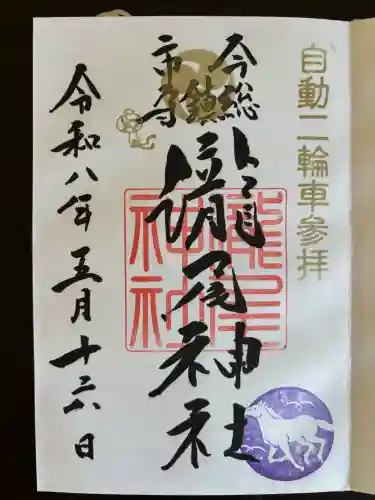 自動二輪車参拝
今市
総鎮守
瀧尾神社
瀧尾神社
令和八年五月十六日